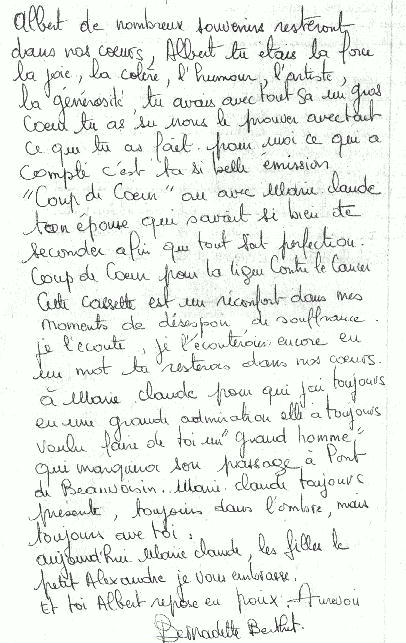 Albert de nombreux souvenirs resteront
dans nos coeurs, Albert tu étais la force
la joie, la colère, l'humour, l'artiste,
la générosité, tu avais avec tout sa un gros
Coeur tu as su nous le prouver avec tout
ce que tu as fait. pour moi ce qui a
compté c'est ta si belle émission
"Coup de Coeur" ou avec Marie claude
ton épouse qui savait si bien te
seconder afin que tout soit perfection.
Coup de Coeur pour la ligue Contre le Cancer
Cette cassette est un réconfort dans mes
moments de désespoir, de souffrance.
je l'écoute, je l'écouterais encore en
un mot tu resteras dans nos coeurs.
à Marie claude pour qui j'ai toujours
eu une grande admiration elle a toujours
voulu faire de toi un "grand homme"
qui marquera son passage à Pont
de Beauvoisin. Marie claude toujours
présente, toujours dans l'ombre, mais
toujours avec toi.
aujourd'hui Marie claude, les filles le
petit Alexandre je vous embrasse.
Et toi Albert repose en paix. Aurevoir
Bernadette Berthet.